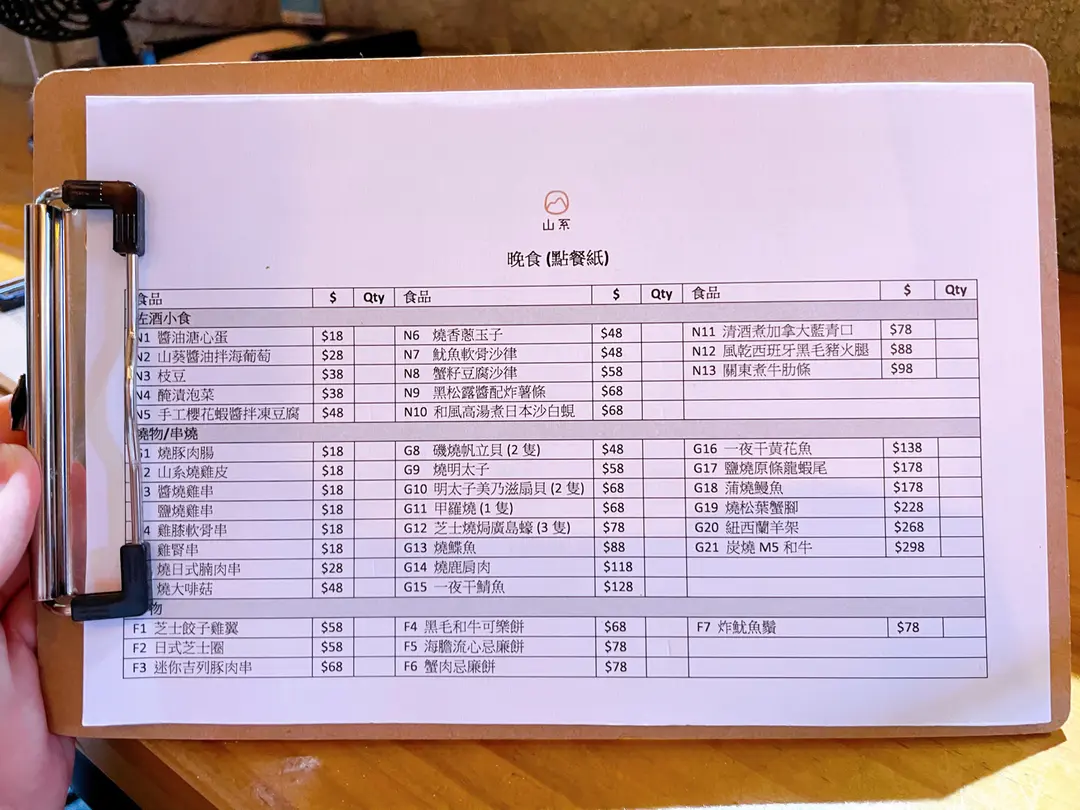 山系
晚食 (點餐紙)
食品 $ Qty 食品 $ Qty 食品 $ Qty
佐酒小食
N1 醬油溏心蛋 $18 N6 燒香蔥玉子 $48 N11 清酒煮加拿大藍青口 $78
N2 山葵醬油拌海葡萄 $28 N7 魷魚軟骨沙律 $48 N12 風乾西班牙黑毛豬火腿 $88
N3 枝豆 $38 N8 蟹籽豆腐沙律 $58 N13 關東煮牛肋條 $98
N4 醃漬泡菜 $38 N9 黑松露醬配炸薯條 $68
N5 手工櫻花蝦醬拌凍豆腐 $48 N10 和風高湯煮日本沙白蜆 $68
燒物/串燒
G1 燒豚肉腸 $18 G8 磯燒帆立貝 (2 隻) $48 G16 一夜干黄花魚 $138
2 山系燒雞皮 $18 G9 燒明太子 $58 G17 鹽燒原條龍蝦尾 $178
3 醬燒雞串 $18 G10 明太子美乃滋扇貝 (2 隻) $68 G18 蒲燒鰻魚 $178
鹽燒雞串 $18 G11 甲羅燒 (1 隻) $68 G19 燒松葉蟹腳 $228
4 雞膝軟骨串 $18 G12 芝士燒焗廣島蠔 (3 隻) $78 G20 紐西蘭羊架 $268
雞腎串 $18 G13 燒鰈魚 $88 G21 炭燒 M5 和牛 $298
燒日式腩肉串 $28 G14 燒鹿肩肉 $118
燒大啡菇 $48 G15 一夜干鯖魚 $128
物
F1 芝士餃子雞翼 $58 F4 黑毛和牛可樂餅 $68 F7 炸魷魚鬚 $78
F2 日式芝士圈 $58 F5 海膽流心忌廉餅 $78
F3 迷你吉列豚肉串 $68 F6 蟹肉忌廉餅 $78